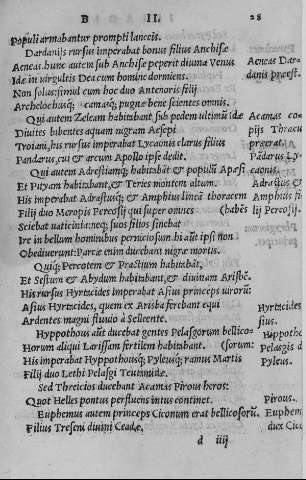 B II. 28
Populi armabantur prompti lanceis.
Dardanijs rursus imperabat bonus filius Anchisæ
Aeneas. hunc autem sub Anchisæ peperit diuina Venus
Idæ in virgultis Dea cum homine dormiens.
Non solus: simul cum hoc duo Antenoris filij
Archelochusq; Acamasq; pugnæ bene scientes omnis.
Qui autem Zeleam habitabant sub pedem vltimũ idæ
Diuites bibentes aquam nigram Aesepi
Troiani, his rursus imperabat Lycaonis clarus filius
Pandarus, cui & arcum Apollo ipse dedit.
Qui autem Adrestiamq; habitabãt & populũ Apæsi
Et Pityam habitabant, & Teries montem altum.
His imperabat Adrastusq; & Amphius lineã thoracem
Filij duo Meropis Percosij qui super omnes (habẽs
Sciebat vaticinia: neq; suos filios sinebat
Ire in bellum hominibus perniciosum. hi aũt ipsi non
Obediuerunt: Parcæ enim ducebant nigræ mortis.
Quiq; Percotem & Practium habitabãt,
Et Sestum & Abydum habitabant, & diuinam Arisbẽ.
His rursus Hyrtacides imperabat Asius princeps virorũ
Asius Hyrtacides, quem ex Arisba ferebant equi
Ardentes magni fluuio à Selleente.
Hyppothous aũt ducebat gentes Pelasgorum bellico-
Horum aliqui Larissam fertilem habitabant. (sorum:
His imperabat Hyppothousq; Pyleusq; ramus Martis
Filij duo Lethi Pelasgi Teutamidæ.
Sed Threicios ducebant Acamas Pirous heros:
Quot Helles pontus perfluens intus continet.
Euphemus autem princeps Ciconum erat bellicosorũ
Filius Treseni diuini Ceadæ.
d iiij
Aeneas Dar-
danis præest.
Acamas co-
pijs Thracũ
præerat.
Pãdarus Ly-
caonis.
Adrastus &
Amphius fi-
lij Percosij.
Hyrtacides
sius.
Hippotho
Pelasgis d
Pyleus.
Pirous.
Euphem
dux Cico